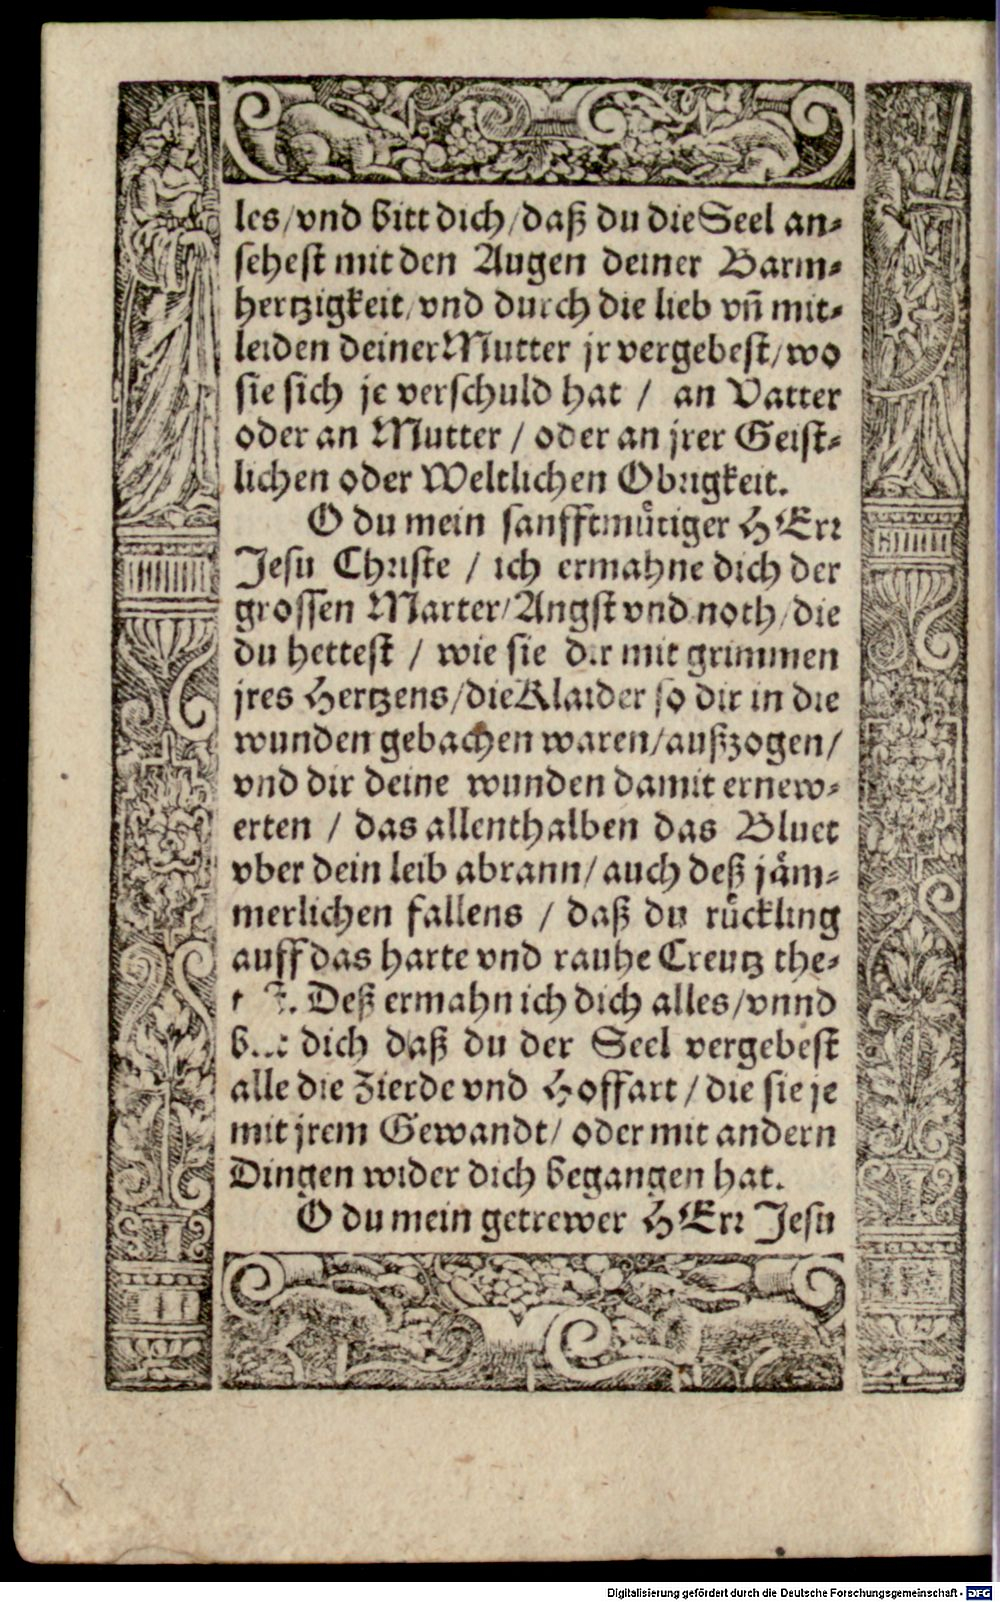 les/vnd bitt dich/daß du die Seel an⸗
sehest mit den Augen deiner Barm⸗
hertzigkeit/vnd durch die lieb vn̄ mit⸗
leiden deiner Mutter jr vergebest/wo
sie sich je verschuld hat / an Vatter
oder an Mutter / oder an jrer Geist⸗
lichen oder Weltlichen Obrigkeit.
O du mein sanfftmuͤtiger HErr
Jesu Christe / ich ermahne dich der
grossen Marter/Angst vnd noth/die
du hettest / wie sie dir mit grimmen
jres Hertzens/die Klaider so dir in die
wunden gebachen waren/außzogen/
vnd dir deine wunden damit ernew⸗
erten / das allenthalben das Bluet
vber dein leib abrann/auch deß jaͤm⸗
merlichen fallens / daß du ruͤckling
auff das harte vnd rauhe Creutz the⸗
Deß ermahn ich dich alles/vnnd
dich daß du der Seel vergebest
alle die Zierde vnd Hoffart / die sie je
mit jrem Gewandt/ oder mit andern
Dingen wider dich begangen hat.
O du mein getrewer HErr Jesu
Digitalisierung gefördert durch die Deutsche Forschungsgemeinschaft - DFG